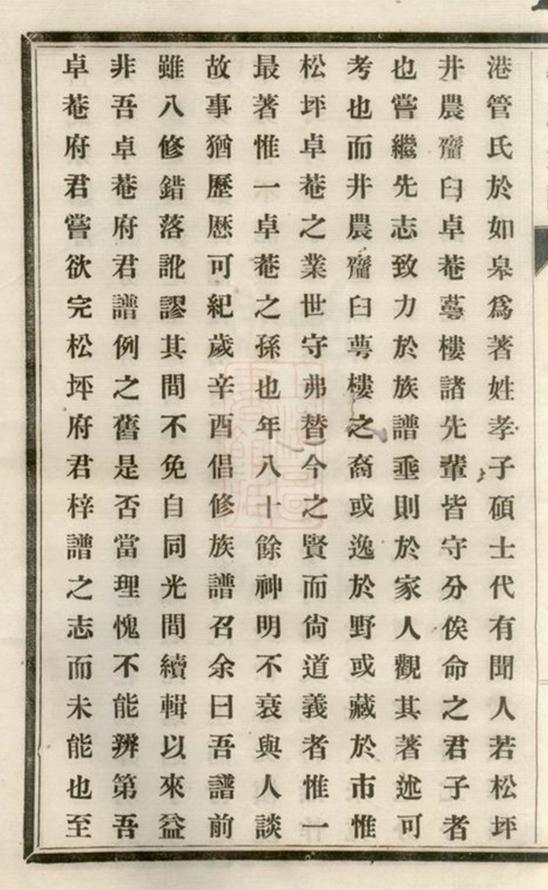 港管氏於如皋爲著姓孝子碩士代有聞人若松坪
井農癯臼卓菴蕚樓諸先輩皆守分俟命之君子者
也嘗繼先志致力於族譜垂則於家人觀其著述可
考也而井農癯臼蕚樓之裔或逸於野或藏於市惟
松坪卓菴之業世守弗替今之賢而尙道義者惟一
最著惟一卓菴之孫也年八十餘神明不衰與人談
故事猶歷歷可紀歲辛酉倡修族譜召余曰吾譜前
雖八修錯落訛謬其間不免自同光間續輯以來益
非吾卓菴府君譜例之舊是否當理愧不能辨第吾
卓菴府君嘗欲完松坪府君梓譜之志而未能也至